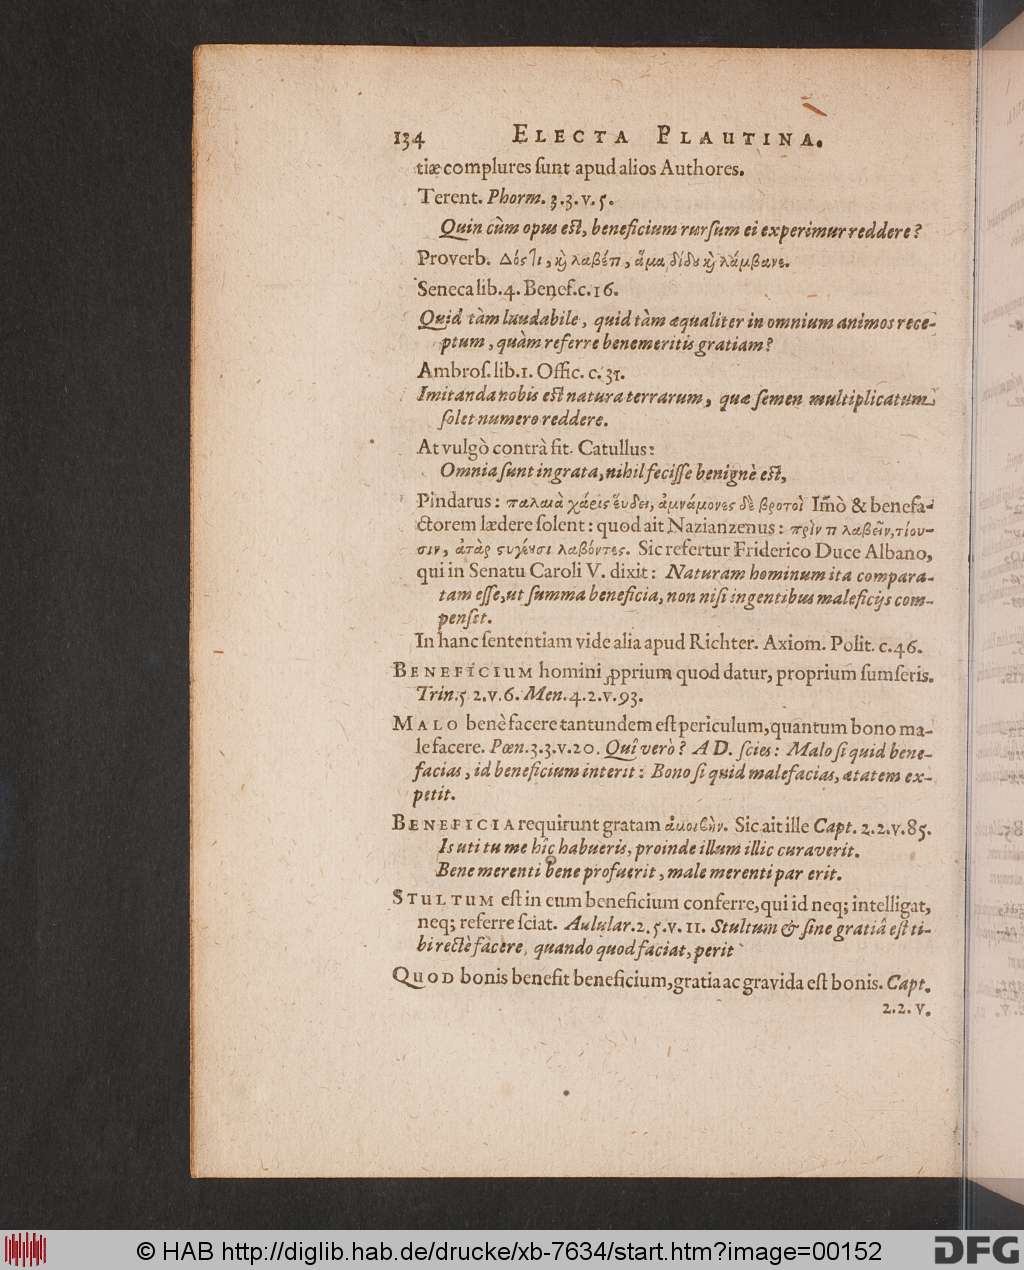 134 ELECTA PLAUTINA.
tiæ complures ſunt apud alios Authores.
Terent. Phorm. 3.3.v.5.
Quin cùm opus eſt, beneficium rurſum ei experimur reddere?
Proverb. Δός τι, καὶ λαβέ τι, ἅμα δίδου καὶ λάμβανε.
Seneca lib.4. Benef.c.16.
Quid tàm laudabile, quid tàm æqualiter in omnium animos rece-
ptum, quàm referre benemeritis gratiam?
Ambroſ. lib.1. Offic. c.31.
Imitanda nobis eſt natura terrarum, quæ ſemen multiplicatum
ſolet numero reddere.
At vulgò contrà fit. Catullus:
Omnia ſunt ingrata, nihil feciſſe benignè eſt,
Pindarus: παλαιὰ χάρις εὕδει, ἀμνάμονες δὲ βροτοὶ Im̃ò & benefa-
ctorem lædere ſolent: quod ait Nazianzenus: πρὶν τι λαβεῖν, τίου-
σιν, ἀτὰρ στυγέουσι λαβόντες. Sic refertur Friderico Duce Albano,
qui in Senatu Caroli V. dixit: Naturam hominum ita compara-
tam eſſe, ut ſumma beneficia, non niſi ingentibus maleficijs com-
penſet.
In hanc ſententiam vide alia apud Richter. Axiom. Polit. c.46.
BENEFICIUM homini ꝓprium quod datur, proprium ſumſeris.
Trin.5 2.v.6. Men.4.2.v.93.
MALO benè facere tantundem eſt periculum, quantum bono ma-
le facere. Pœn.3.3.v.20. Quî verò? A D. ſcies: Malo ſi quid bene-
facias, id beneficium interit: Bono ſi quid malefacias, ætatem ex-
petit.
BENEFICIA requirunt gratam ἀμοιϐὴν. Sic ait ille Capt. 2.2.v.85.
Is uti tu me hîc habueris, proinde illum illic curaverit.
Bene merenti bene profuerit, male merenti par erit.
STULTUM eſt in eum beneficium conferre, qui id neq; intelligat,
neq; referre ſciat. Aulular.2.5.v.11. Stultum & ſine gratiâ eſt ti-
bi rectè facere, quando quod faciat, perit
QUOD bonis benefit beneficium, gratia ac gravida eſt bonis. Capt.
2.2.v.
© HAB http://diglib.hab.de/drucke/xb-7634/start.htm?image=00152
DFG